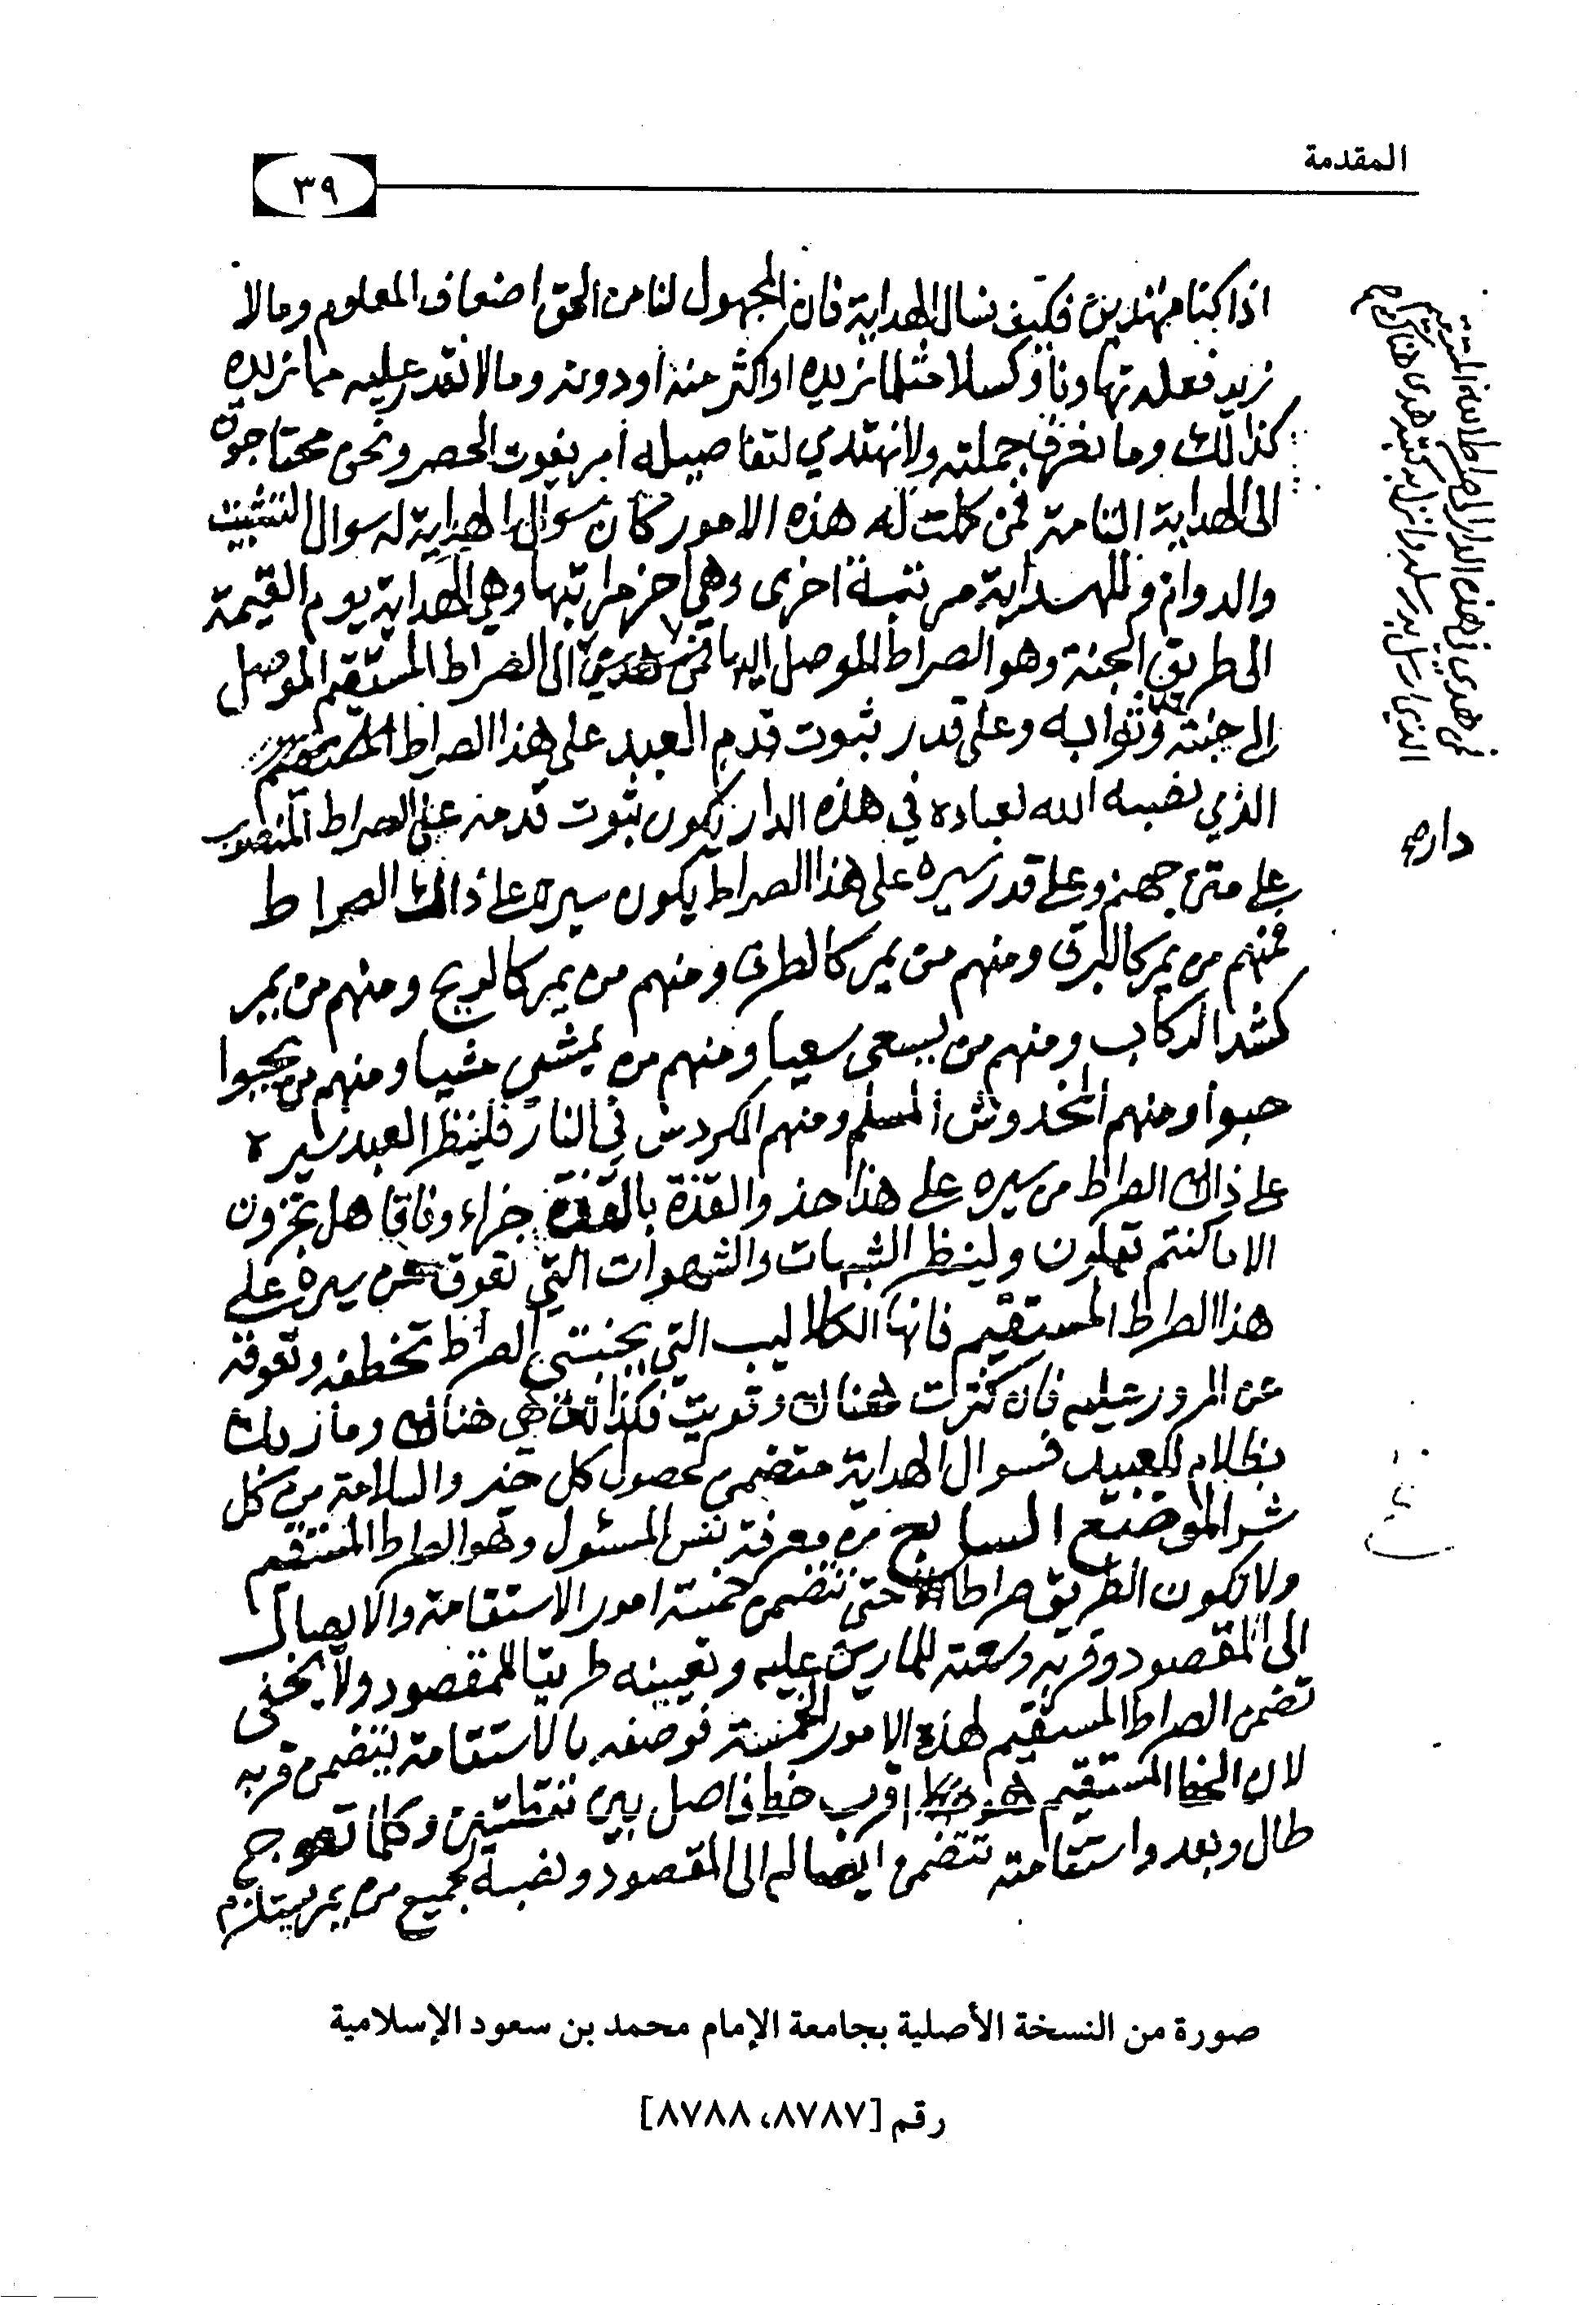 المقدمة
٣٩
اذا كنا مهتدين فكيف نسال الهداية فان المجهول لنا من الحق اضعاف المعلوم وما لا
نريد فعله تهاونا وكسلا مثل ما نريده او اكثر منه او دونه وما لا نقدر عليه مما نريده
كذالك وما نعرف جملته ولا نهتدي لتفاصيله أمر يفوت الحصر ونحن محتاجون
الى الهداية التامة فمن كملت له هذه الامور كان سوال الهداية له سوال التثبيت
والدوام وللهداية مرتبة اخرى وهي آخر مراتبها وهي الهداية يوم القيمة
الى طريق الجنة وهو الصراط الموصل اليها فمن هدي الى الصراط المستقيم الموصل
إلى جنته وثوابه وعلى قدر ثبوت قدم العبد على هذا الصراط المستقيم
الذي نصبه الله لعباده في هذه الدار يكون ثبوت قدمه على الصراط المنصوب
على متن جهنم وعلى قدر سيره على هذا الصراط يكون سيره على ذالك الصراط
فمنهم من يمر كالبرق ومنهم من يمر كالطرف ومنهم من يمر كالريح ومنهم من يمر
كشد الركاب ومنهم من يسعى سعيا ومنهم من يمشي مشيا ومنهم من يحبوا
حبوا ومنهم المخدوش المسلم ومنهم المكردس في النار فلينظر العبد سيره
على ذالك الصراط من سيره على هذا حذو القذة بالقذة جزاء وفاقا هل تجزون
الا ما كنتم تعملون ولينظر الشبهات والشهوات التي تعوق عن سيره على
هذا الصراط المستقيم فانها الكلاليب التي بجنبتي الصراط تخطفه وتعوقه
عن المرور عليه فان كثرت هناك وقويت فكذالك هي هنالك وما ربك
بظلام للعبيد فسوال الهداية متضمن لحصول كل خير والسلامة من كل
شر الموضع السابع من معرفة نفس المسئول وهو الصراط المستقيم
ولا تكون الطريق صراطا حتى تتضمن خمسة امور الاستقامة والايصال
الى المقصود وقربه وسعته للمارين عليه وتعيينه طريقا للمقصود ولا يخفى
تضمن الصراط المستقيم لهذه الامور الخمسة فوصفه بالاستقامة يتضمن قربه
لان الخط المستقيم هو اقرب خط فاصل بين نقطتين وكلما تعوج
طال وبعد واستقامته تتضمن ايصاله الى المقصود ونصبه لجميع من يمر يستلزم
فمن هدي في هذه الدار الى صراط الله المستقيم
الذي ارسل به رسله وانزل به كتبه هدي هناك
دار صح
صورة من النسخة الأصلية بجامعة الإمام محمد بن سعود الإسلامية
رقم [٨٧٨٧، ٨٧٨٨]